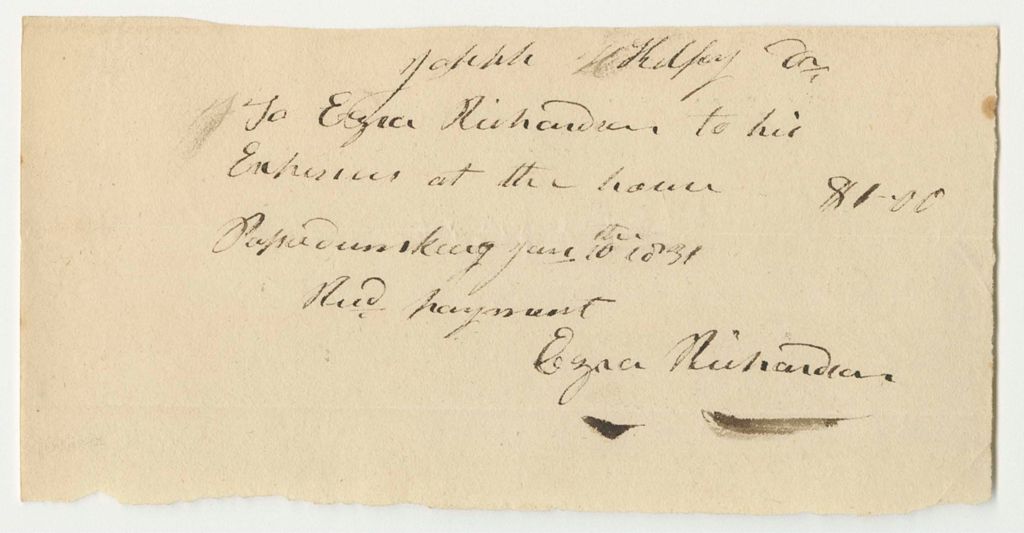 Joseph Kelsey Dr.
To Ezra Richardson to his
Expenses at the house $1-00
Passadumkeag Jan 10th 1831
Recd. payment
Ezra Richardson